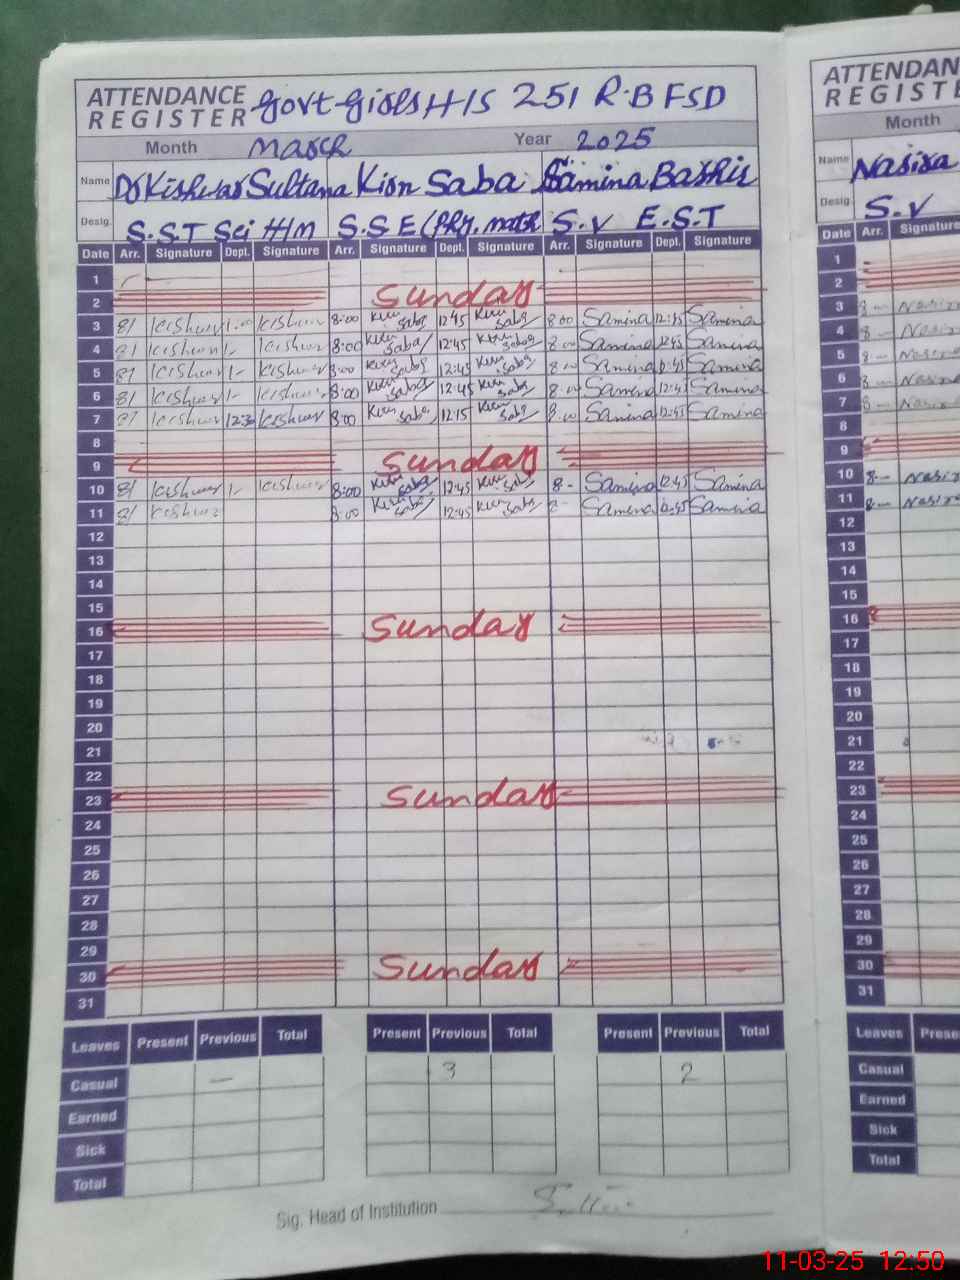 ATTENDANCE REGISTER Govt Girls H/S 251 R.B FSD
Month March Year 2025
Name Dr Kishwar Sultana Kiran Saba Samina Bashir
Desig. S.S.T Sci H/m S.S.E (Phy. math S.V E.S.T
Date Arr. Signature Dept. Signature Arr. Signature Dept. Signature Arr. Signature Dept. Signature
1
2 Sunday
3 8/ Kishwar 1.00 Kishwar 8:00 Kiran Saba 12:45 Kiran Saba 8:00 Samina 12:45 Samina
4 8/ Kishwar 1- Kishwar 8:00 Kiran Saba 12:45 Kiran Saba 8:00 Samina 12:45 Samina
5 8/ Kishwar 1- Kishwar 8:00 Kiran Saba 12:45 Kiran Saba 8:00 Samina 12:45 Samina
6 8/ Kishwar 1- Kishwar 8:00 Kiran Saba 12:45 Kiran Saba 8:00 Samina 12:45 Samina
7 8/ Kishwar 12:30 Kishwar 8:00 Kiran Saba 12:15 Kiran Saba 8:00 Samina 12:45 Samina
8
9 Sunday
10 8/ Kishwar 1- Kishwar 8:00 Kiran Saba 12:45 Kiran Saba 8- Samina 12:45 Samina
11 8/ Kishwar 8:00 Kiran Saba 12:45 Kiran Saba 8- Samina 12:45 Samina
12
13
14
15
16 Sunday
17
18
19
20
21
22
23 Sunday
24
25
26
27
28
29
30 Sunday
31
Leaves Present Previous Total Present Previous Total Present Previous Total
Casual — 3 2
Earned
Sick
Total
Sig. Head of Institution
ATTENDAN
REGISTE
Month
Name Nasira
Desig. S.V
Date Arr. Signature
1
2
3 8- Nasir
4 8- Nasir
5 8- Nasir
6 8- Nasir
7 8- Nasir
8
9
10 8- Nasir
11 8- Nasir
12
13
14
15
16
17
18
19
20
21
22
23
24
25
26
27
28
29
30
31
Leaves Prese
Casual
Earned
Sick
Total
11-03-25 12:50